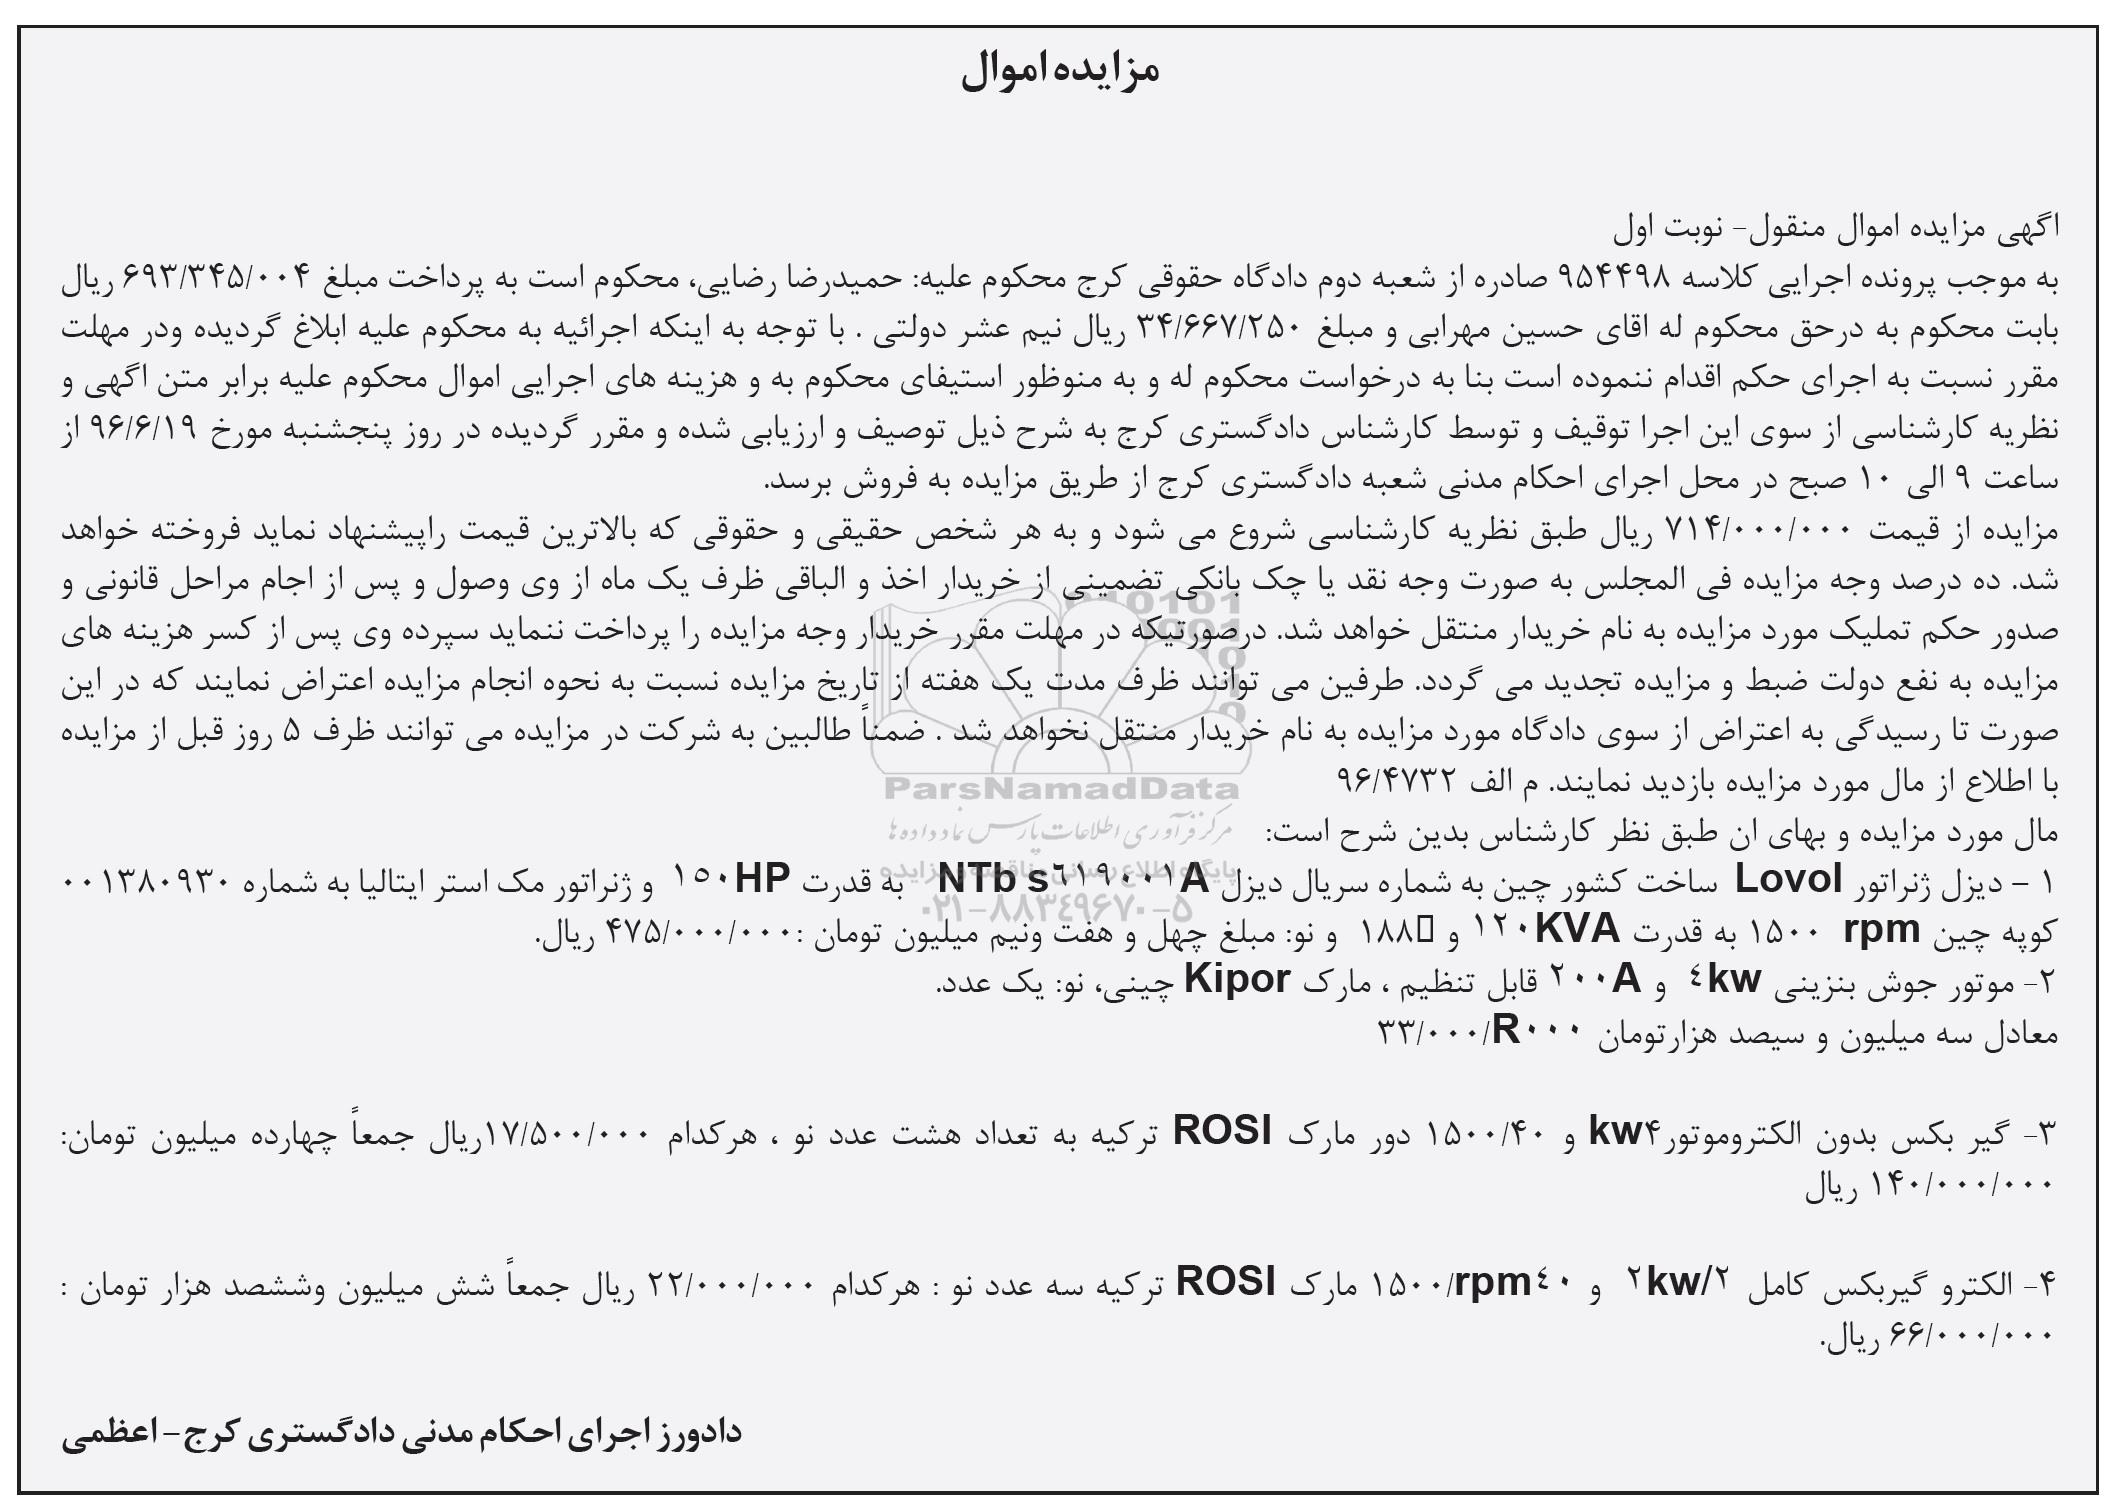 مزایده اموال
اگهی مزایده اموال منقول- نوبت اول
به موجب پرونده اجرایی کلاسه ۹۵۴۴۹۸ صادره از شعبه دوم دادگاه حقوقی کرج محکوم علیه: حمیدرضا رضایی، محکوم است به پرداخت مبلغ ۶۹۳/۳۴۵/۰۰۴ ریال
بابت محکوم به درحق محکوم له اقای حسین مهرابی و مبلغ ۳۴/۶۶۷/۲۵۰ ریال نیم عشر دولتی . با توجه به اینکه اجرائیه به محکوم علیه ابلاغ گردیده ودر مهلت
مقرر نسبت به اجرای حکم اقدام ننموده است بنا به درخواست محکوم له و به منوظور استیفای محکوم به و هزینه های اجرایی اموال محکوم علیه برابر متن اگهی و
نظریه کارشناسی از سوی این اجرا توقیف و توسط کارشناس دادگستری کرج به شرح ذیل توصیف و ارزیابی شده و مقرر گردیده در روز پنجشنبه مورخ ۹۶/۶/۱۹ از
ساعت ۹ الی ۱۰ صبح در محل اجرای احکام مدنی شعبه دادگستری کرج از طریق مزایده به فروش برسد.
مزایده از قیمت ۷۱۴/۰۰۰/۰۰۰ ریال طبق نظریه کارشناسی شروع می شود و به هر شخص حقیقی و حقوقی که بالاترین قیمت راپیشنهاد نماید فروخته خواهد
شد. ده درصد وجه مزایده فی المجلس به صورت وجه نقد یا چک بانکی تضمینی از خریدار اخذ و الباقی ظرف یک ماه از وی وصول و پس از اجام مراحل قانونی و
صدور حکم تملیک مورد مزایده به نام خریدار منتقل خواهد شد. درصورتیکه در مهلت مقرر خریدار وجه مزایده را پرداخت ننماید سپرده وی پس از کسر هزینه های
مزایده به نفع دولت ضبط و مزایده تجدید می گردد. طرفین می توانند ظرف مدت یک هفته از تاریخ مزایده نسبت به نحوه انجام مزایده اعتراض نمایند که در این
صورت تا رسیدگی به اعتراض از سوی دادگاه مورد مزایده به نام خریدار منتقل نخواهد شد . ضمناً طالبین به شرکت در مزایده می توانند ظرف ۵ روز قبل از مزایده
با اطلاع از مال مورد مزایده بازدید نمایند. م الف ۹۶/۴۷۳۲
ParsNamadData
مرکز فرآوری اطلاعات پارس نماد داده ها
مال مورد مزایده و بهای ان طبق نظر کارشناس بدین شرح است:
پایگاه اطلاع رسانی مناقصه و مزایده
۱ – دیزل ژنراتور Lovol ساخت کشور چین به شماره سریال دیزل NTb s٦١٩٠٠١A به قدرت ١٥٠HP و ژنراتور مک استر ایتالیا به شماره ۰۰۱۳۸۰۹۳۰
۰۲۱-۸۸۳۴۹۶۷۰-۵
کوپه چین ۱۵۰۰ rpm به قدرت ١٢٠KVA و ۱۸۸ و نو: مبلغ چهل و هفت ونیم میلیون تومان :۴۷۵/۰۰۰/۰۰۰ ریال.
۲- موتور جوش بنزینی ٤kw و ٢٠٠A قابل تنظیم ، مارک Kipor چینی، نو: یک عدد.
معادل سه میلیون و سیصد هزارتومان ۳۳/۰۰۰/R۰۰۰
۳- گیر بکس بدون الکتروموتور۴kw و ۱۵۰۰/۴۰ دور مارک ROSI ترکیه به تعداد هشت عدد نو ، هرکدام ۱۷/۵۰۰/۰۰۰ریال جمعاً چهارده میلیون تومان:
۱۴۰/۰۰۰/۰۰۰ ریال
۴- الکترو گیربکس کامل ٢kw/٢ و ۱۵۰۰/rpm٤٠ مارک ROSI ترکیه سه عدد نو : هرکدام ۲۲/۰۰۰/۰۰۰ ریال جمعاً شش میلیون وششصد هزار تومان :
۶۶/۰۰۰/۰۰۰ ریال.
دادورز اجرای احکام مدنی دادگستری کرج- اعظمی